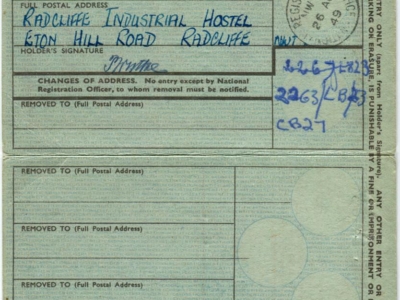 FULL POSTAL ADDRESS
RADCLIFFE INDUSTRIAL HOSTEL
ETON HILL ROAD RADCLIFFE
HOLDER'S SIGNATURE
CHANGES OF ADDRESS. No entry except by National
Registration Officer, to whom removal must be notified.
REMOVED TO (Full Postal Address)
REMOVED TO (Full Postal Address)
REMOVED TO (Full Postal Address)
REMOVED TO (Full Postal Address)
26 A
49
2263/CB23
CB27
ENTRY ONLY (apart from Holder's Signature). ANY OTHER ENTRY OR
MARKING OR ERASURE, IS PUNISHABLE BY A FINE OR IMPRISONMENT OR